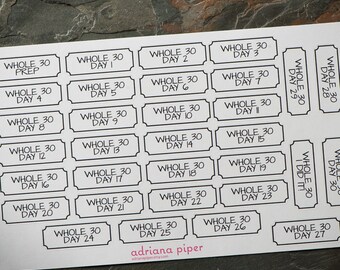 WHOLE 30
PREP
WHOLE 30
DAY 1
WHOLE 30
DAY 2
WHOLE 30
DAY 3
WHOLE 30
DAY 4
WHOLE 30
DAY 5
WHOLE 30
DAY 6
WHOLE 30
DAY 7
WHOLE 30
DAY 8
WHOLE 30
DAY 9
WHOLE 30
DAY 10
WHOLE 30
DAY 11
WHOLE 30
DAY 12
WHOLE 30
DAY 13
WHOLE 30
DAY 14
WHOLE 30
DAY 15
WHOLE 30
DAY 16
WHOLE 30
DAY 17
WHOLE 30
DAY 18
WHOLE 30
DAY 19
WHOLE 30
DAY 20
WHOLE 30
DAY 21
WHOLE 30
DAY 22
WHOLE 30
DAY 23
WHOLE 30
DAY 24
WHOLE 30
DAY 25
WHOLE 30
DAY 26
WHOLE 30
DAY 27
WHOLE 30
DAY 29
WHOLE 30
DAY 28
WHOLE 30
DO IT!
WHOLE 30
adriana piper